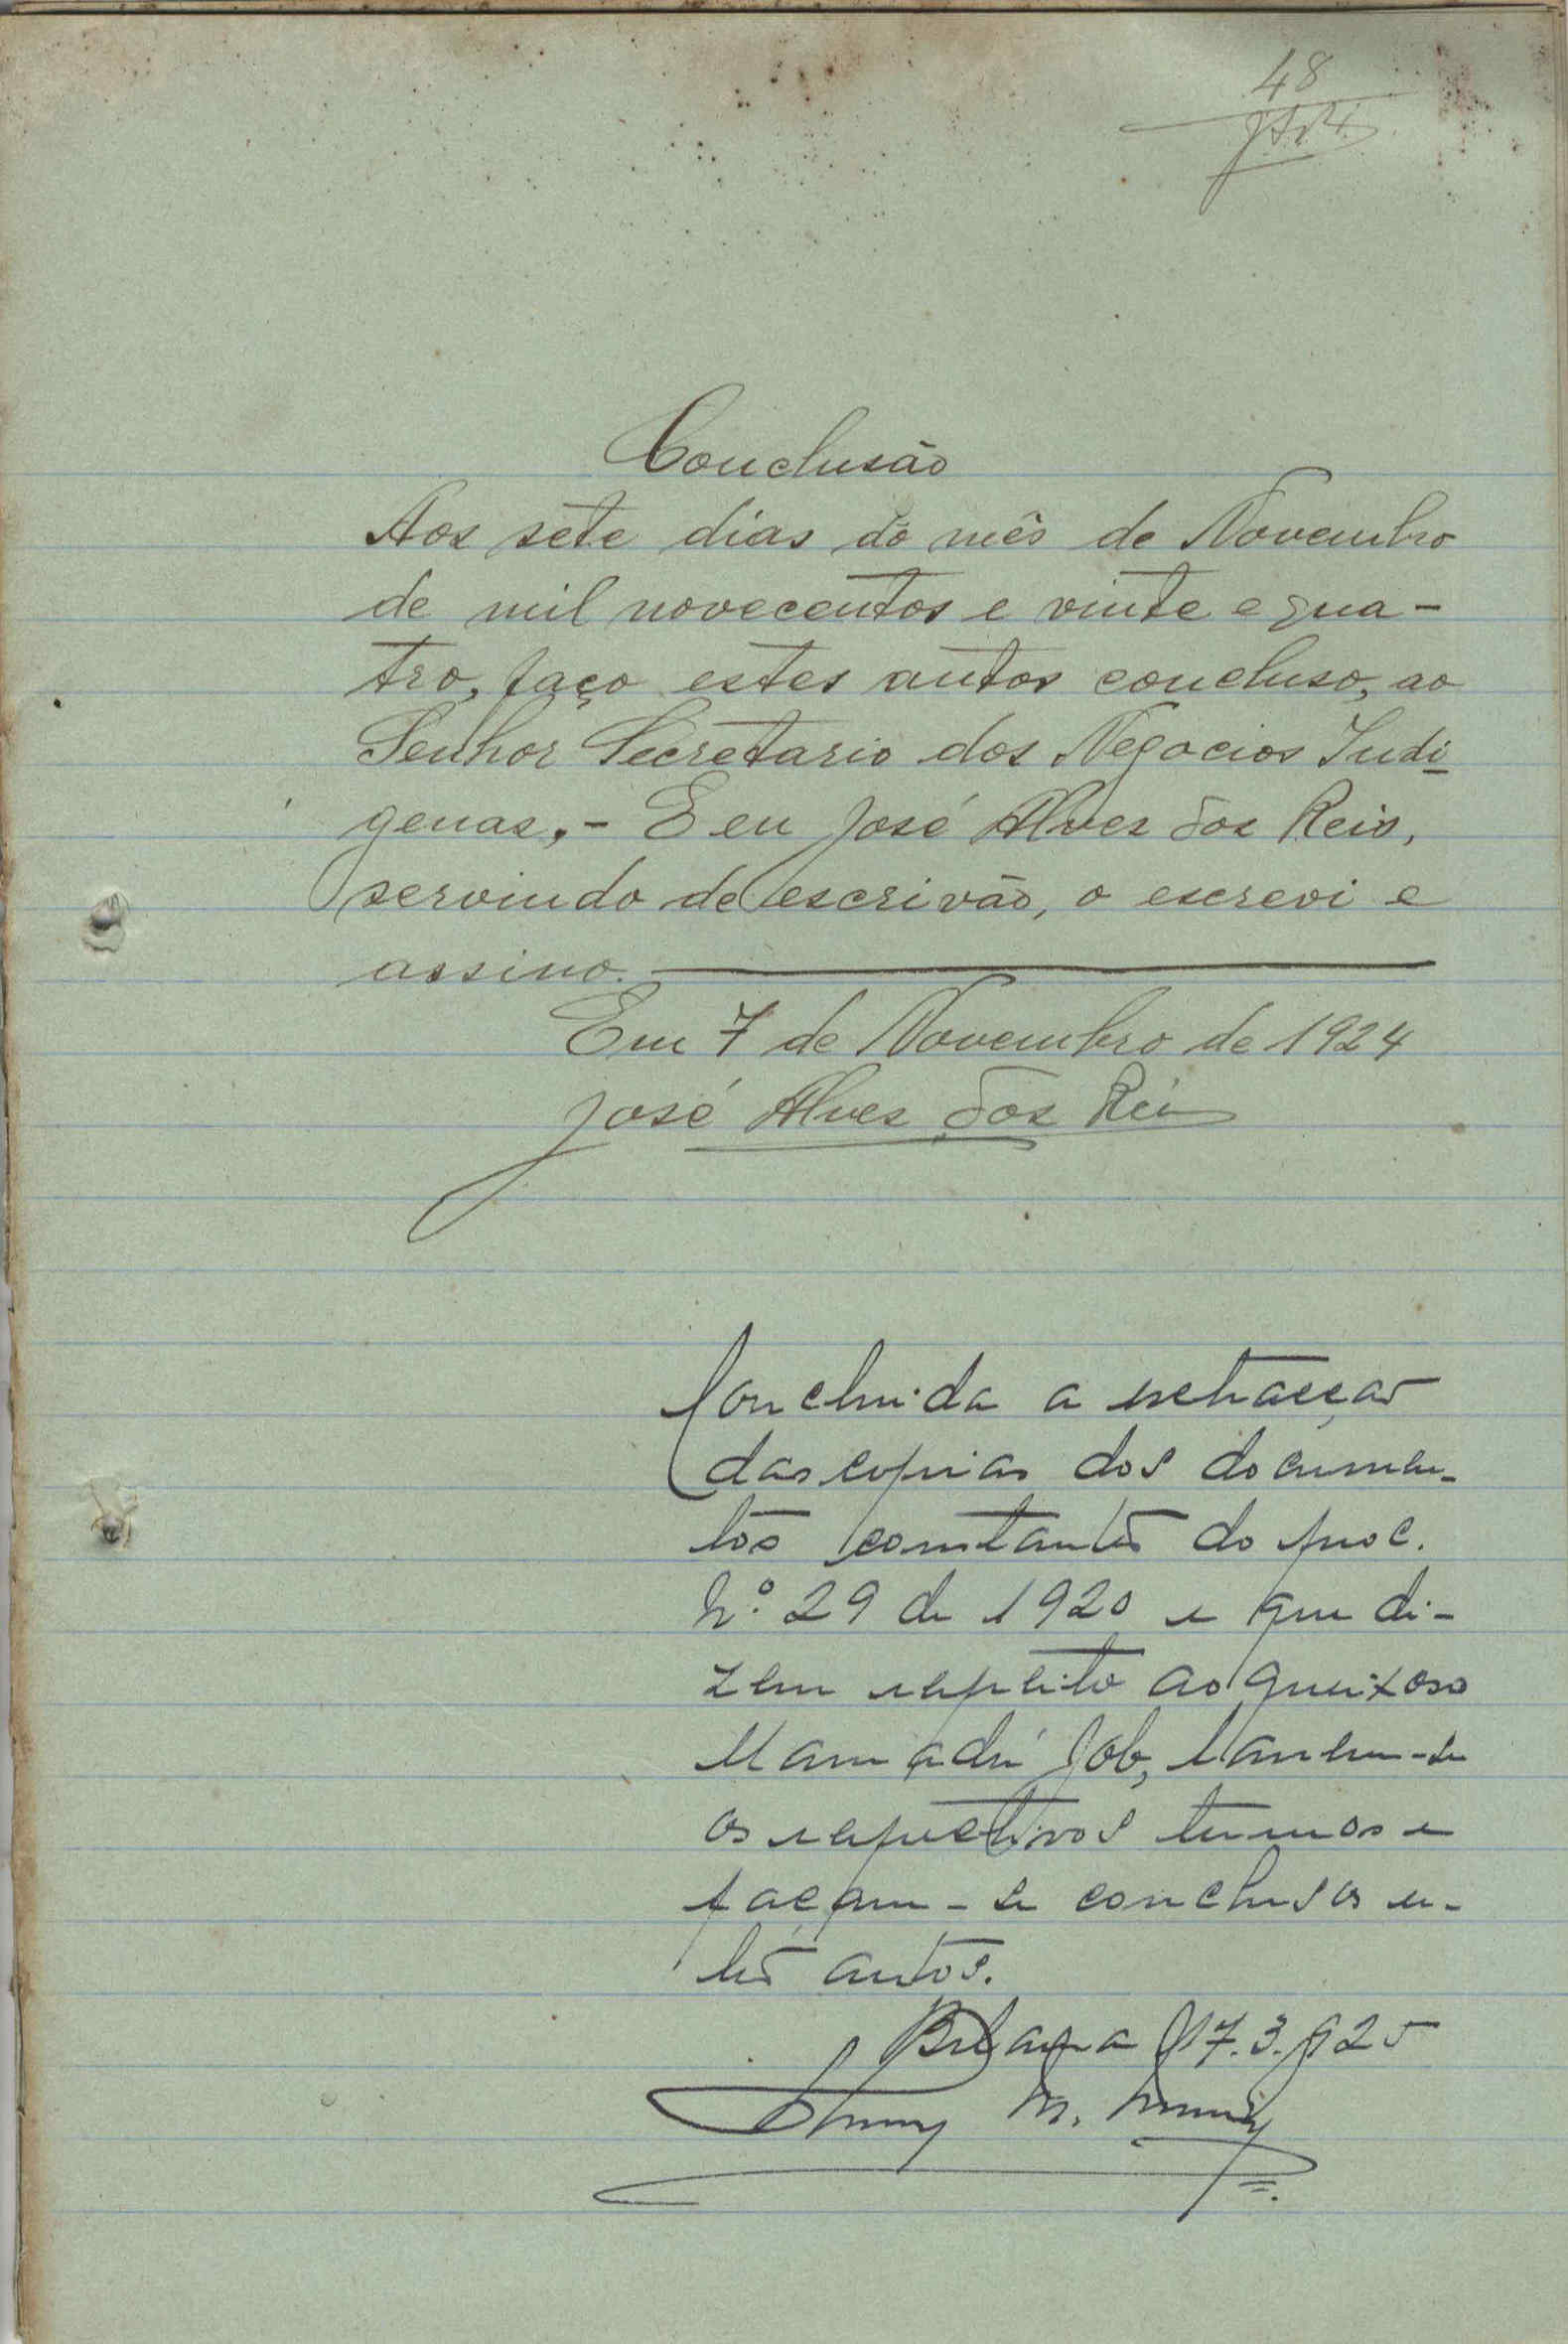 48
Conclusão
Aos sete dias do mês de Novembro
de mil novecentos e vinte e qua-
tro, faço estes autos concluso, ao
Senhor Secretario dos Negocios Indi-
genas,- E eu José Alves dos Reis,
servindo de escrivão, o escrevi e
assino.
Em 7 de Novembro de 1924
José Alves dos Reis
Concluida a extracção
das copias dos documen-
tos constantes do proc.
Nº 29 de 1920 e que di-
zem respeito ao queixoso
Mamadú Job, lavrem-se
os respectivos termos e
façam-se conclusos es-
tes autos.
Bolama 17.3.925